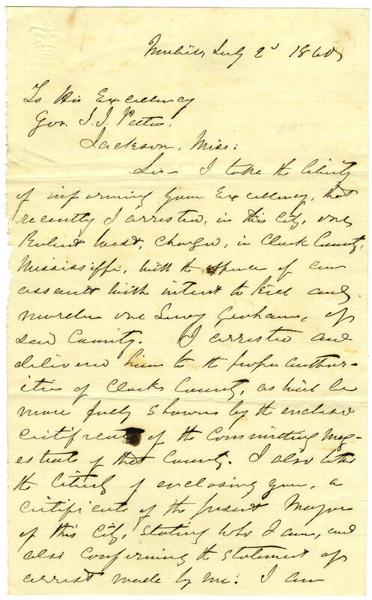 Mobile July 2d 1860
To His Excellency
Gov. J. J. Pettus.
Jackson, Miss:
Sir - I take the liberty
of informing Your Excellency, that
recently I arrested, in this City, one
Robert West, charged, in Clark County,
Mississippi, with the offence of an
assault with intent to kill and
murder one Levy Graham, of
said County. I arrested and
delivered him to the proper author-
ities of Clarke County, as will be
more fully shown by the enclosed
certificate of the Committing Mag-
istrate of that County. I also take
the liberty of enclosing you, a
certificate of the present Mayor
of this City, stating who I am, and
also confirming the statement of
arrest made by me: I am